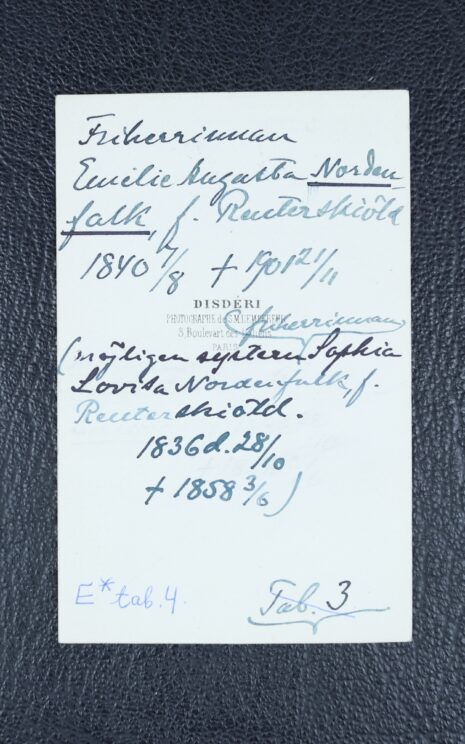 Friherrinnan
Emilie Augusta Norden-
falk, f. Reuterskiöld
1840 7/8 + 1901 21/11
DISDÉRI
PHOTOGRAPHE de S.M. L'EMPEREUR
8, Boulevart des Italiens
PARIS
friherrinnan
(möjligen systern Sophia
Lovisa Nordenfalk, f.
Reuterskiöld.
1836 d. 28/10
+ 1858 3/6)
E* tab. 4.
Tab. 3